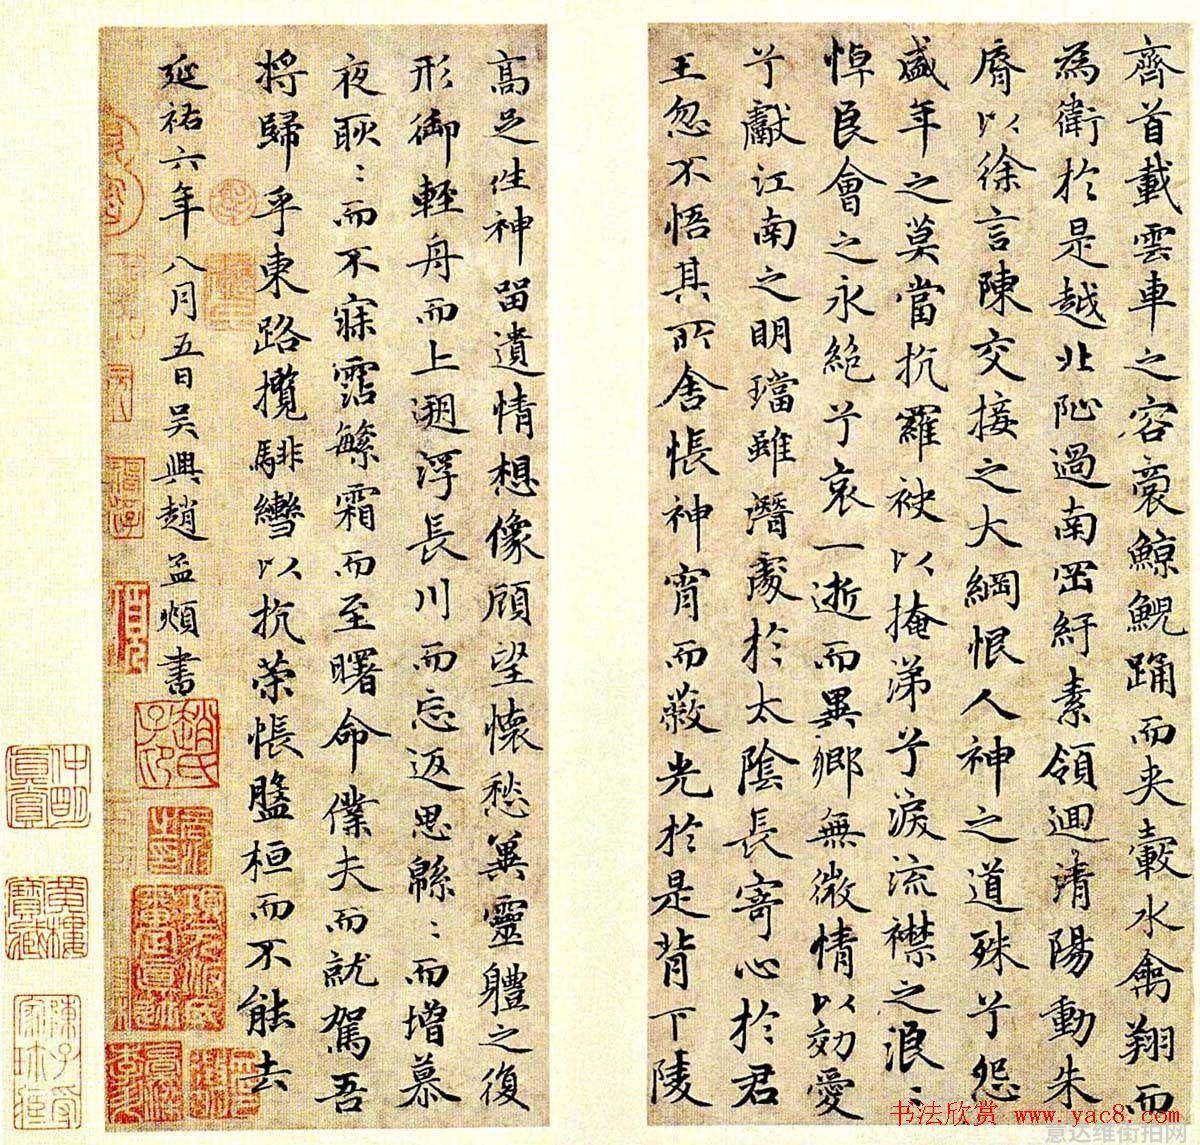 齊首載雲車之容裔鯨鯢踊而夾轂水禽翔而
為衛於是越北沚過南岡紆素領迴清陽動朱
脣以徐言陳交接之大綱恨人神之道殊兮怨
盛年之莫當抗羅袂以掩涕兮淚流襟之浪〻
悼良會之永絕兮哀一逝而異鄉無微情以効愛
兮獻江南之明璫雖潛處於太陰長寄心於君
王忽不悟其所舍悵神宵而蔽光於是背下陵
高足往神留遺情想像顧望懷愁冀靈體之復
形御輕舟而上遡浮長川而忘返思緜〻而增慕
夜耿〻而不寐霑繁霜而至曙命僕夫而就駕吾
將歸乎東路攬騑轡以抗策悵盤桓而不能去
延祐六年八月五日吳興趙孟頫書
趙氏子昂
書法欣赏 www.yac8.com
意达维街拍网